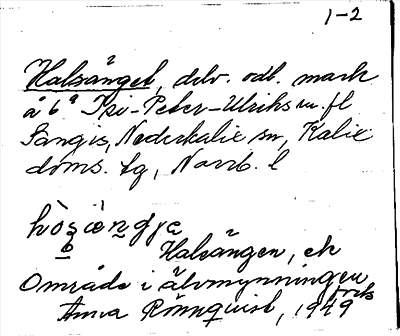 1-2
Halsänget, delv. odl. mark
å 6ª Psi-Peter-Ulriks m. fl
Sangis, Nederkalix sn, Kalix
doms. tg, Norrb. l
hòsiengjɛ
Halsängen, ek
Område i älvmynningen
forts
Anna Rönnquist, 1949